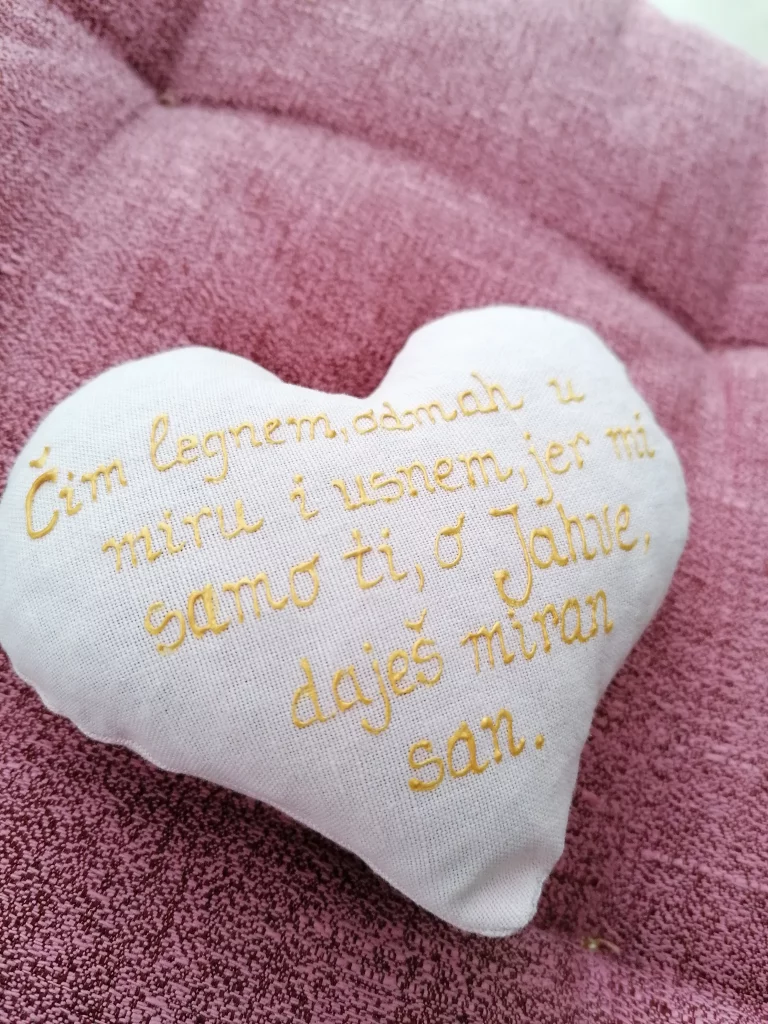 Čim legnem, odmah u
miru i usnem, jer mi
samo ti, o Jahve,
daješ miran
san.